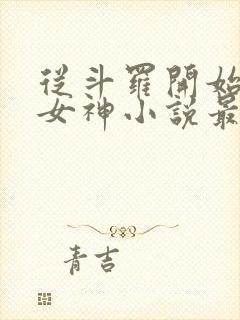 從斗羅開始
女神小說最
青吉